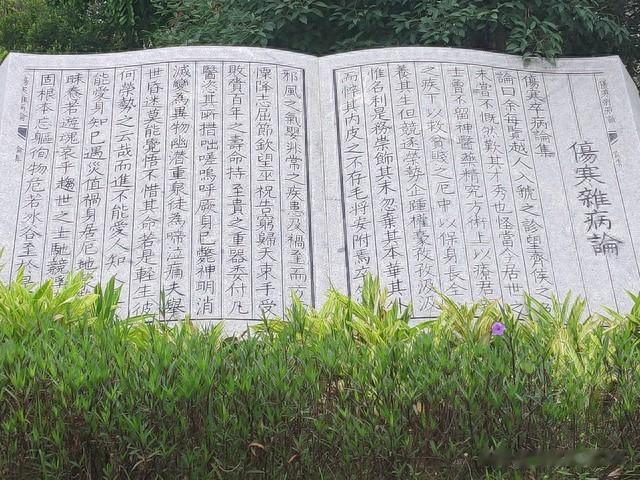 傷寒雜病論
傷寒卒病論集
論曰余每覽越人入虢之診望齊侯之
未嘗不慨然歎其才秀也怪當今居世
士曾不留神醫藥精究方術上以療君
之疾下以救貧賤之厄中以保身長全
養其生但競逐榮勢企踵權豪孜孜汲汲
惟名利是務崇飾其末忽棄其本華其外
而悴其內皮之不存毛將安附焉卒
邪風之氣嬰非常之疾患及禍至而
慄降志屈節欽望巫祝告窮歸天束手受
敗賫百年之壽命持至貴之重器委付凡
醫恣其所措咄嗟嗚呼厥身已斃神明消
滅變為異物幽潛重泉徒為啼泣痛夫舉
世昏迷莫能覺悟不惜其命若是輕生彼
何榮勢之云哉而進不能愛人知
能愛身知己遇災值禍身居厄地
昧蠢若遊魂哀乎趨世之士馳競
固根本忘軀徇物危若冰谷至